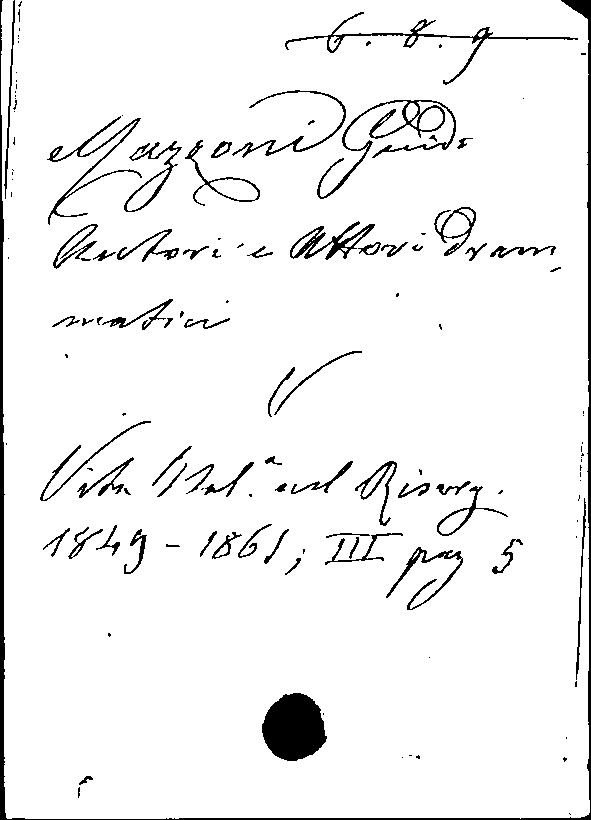 6. 8. 9
Mazzoni Guido
Autori e Attori Dram,
matici
V
Vita Ital.a nel Risorg.
1849-1861; III pag 5